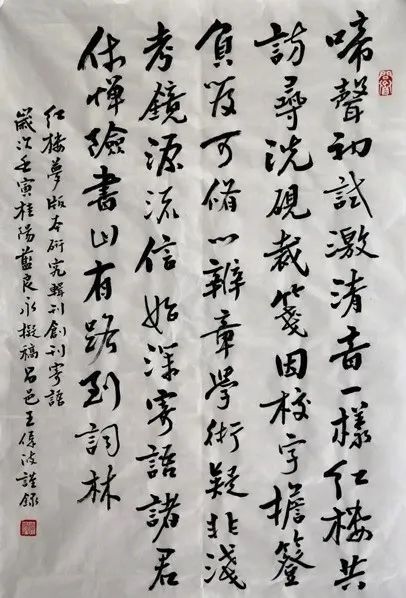 啼聲初試激清音一樣紅樓共
訪尋洗硯裁箋因校字擔簦
負笈可脩心辨章學術疑非淺
考鏡源流信始深寄語諸君
休憚險書山有路到詞林
紅樓夢版本研究輯刊創刊寄語
歲次壬寅桂陽藍良永擬稿邑王偉波謹錄